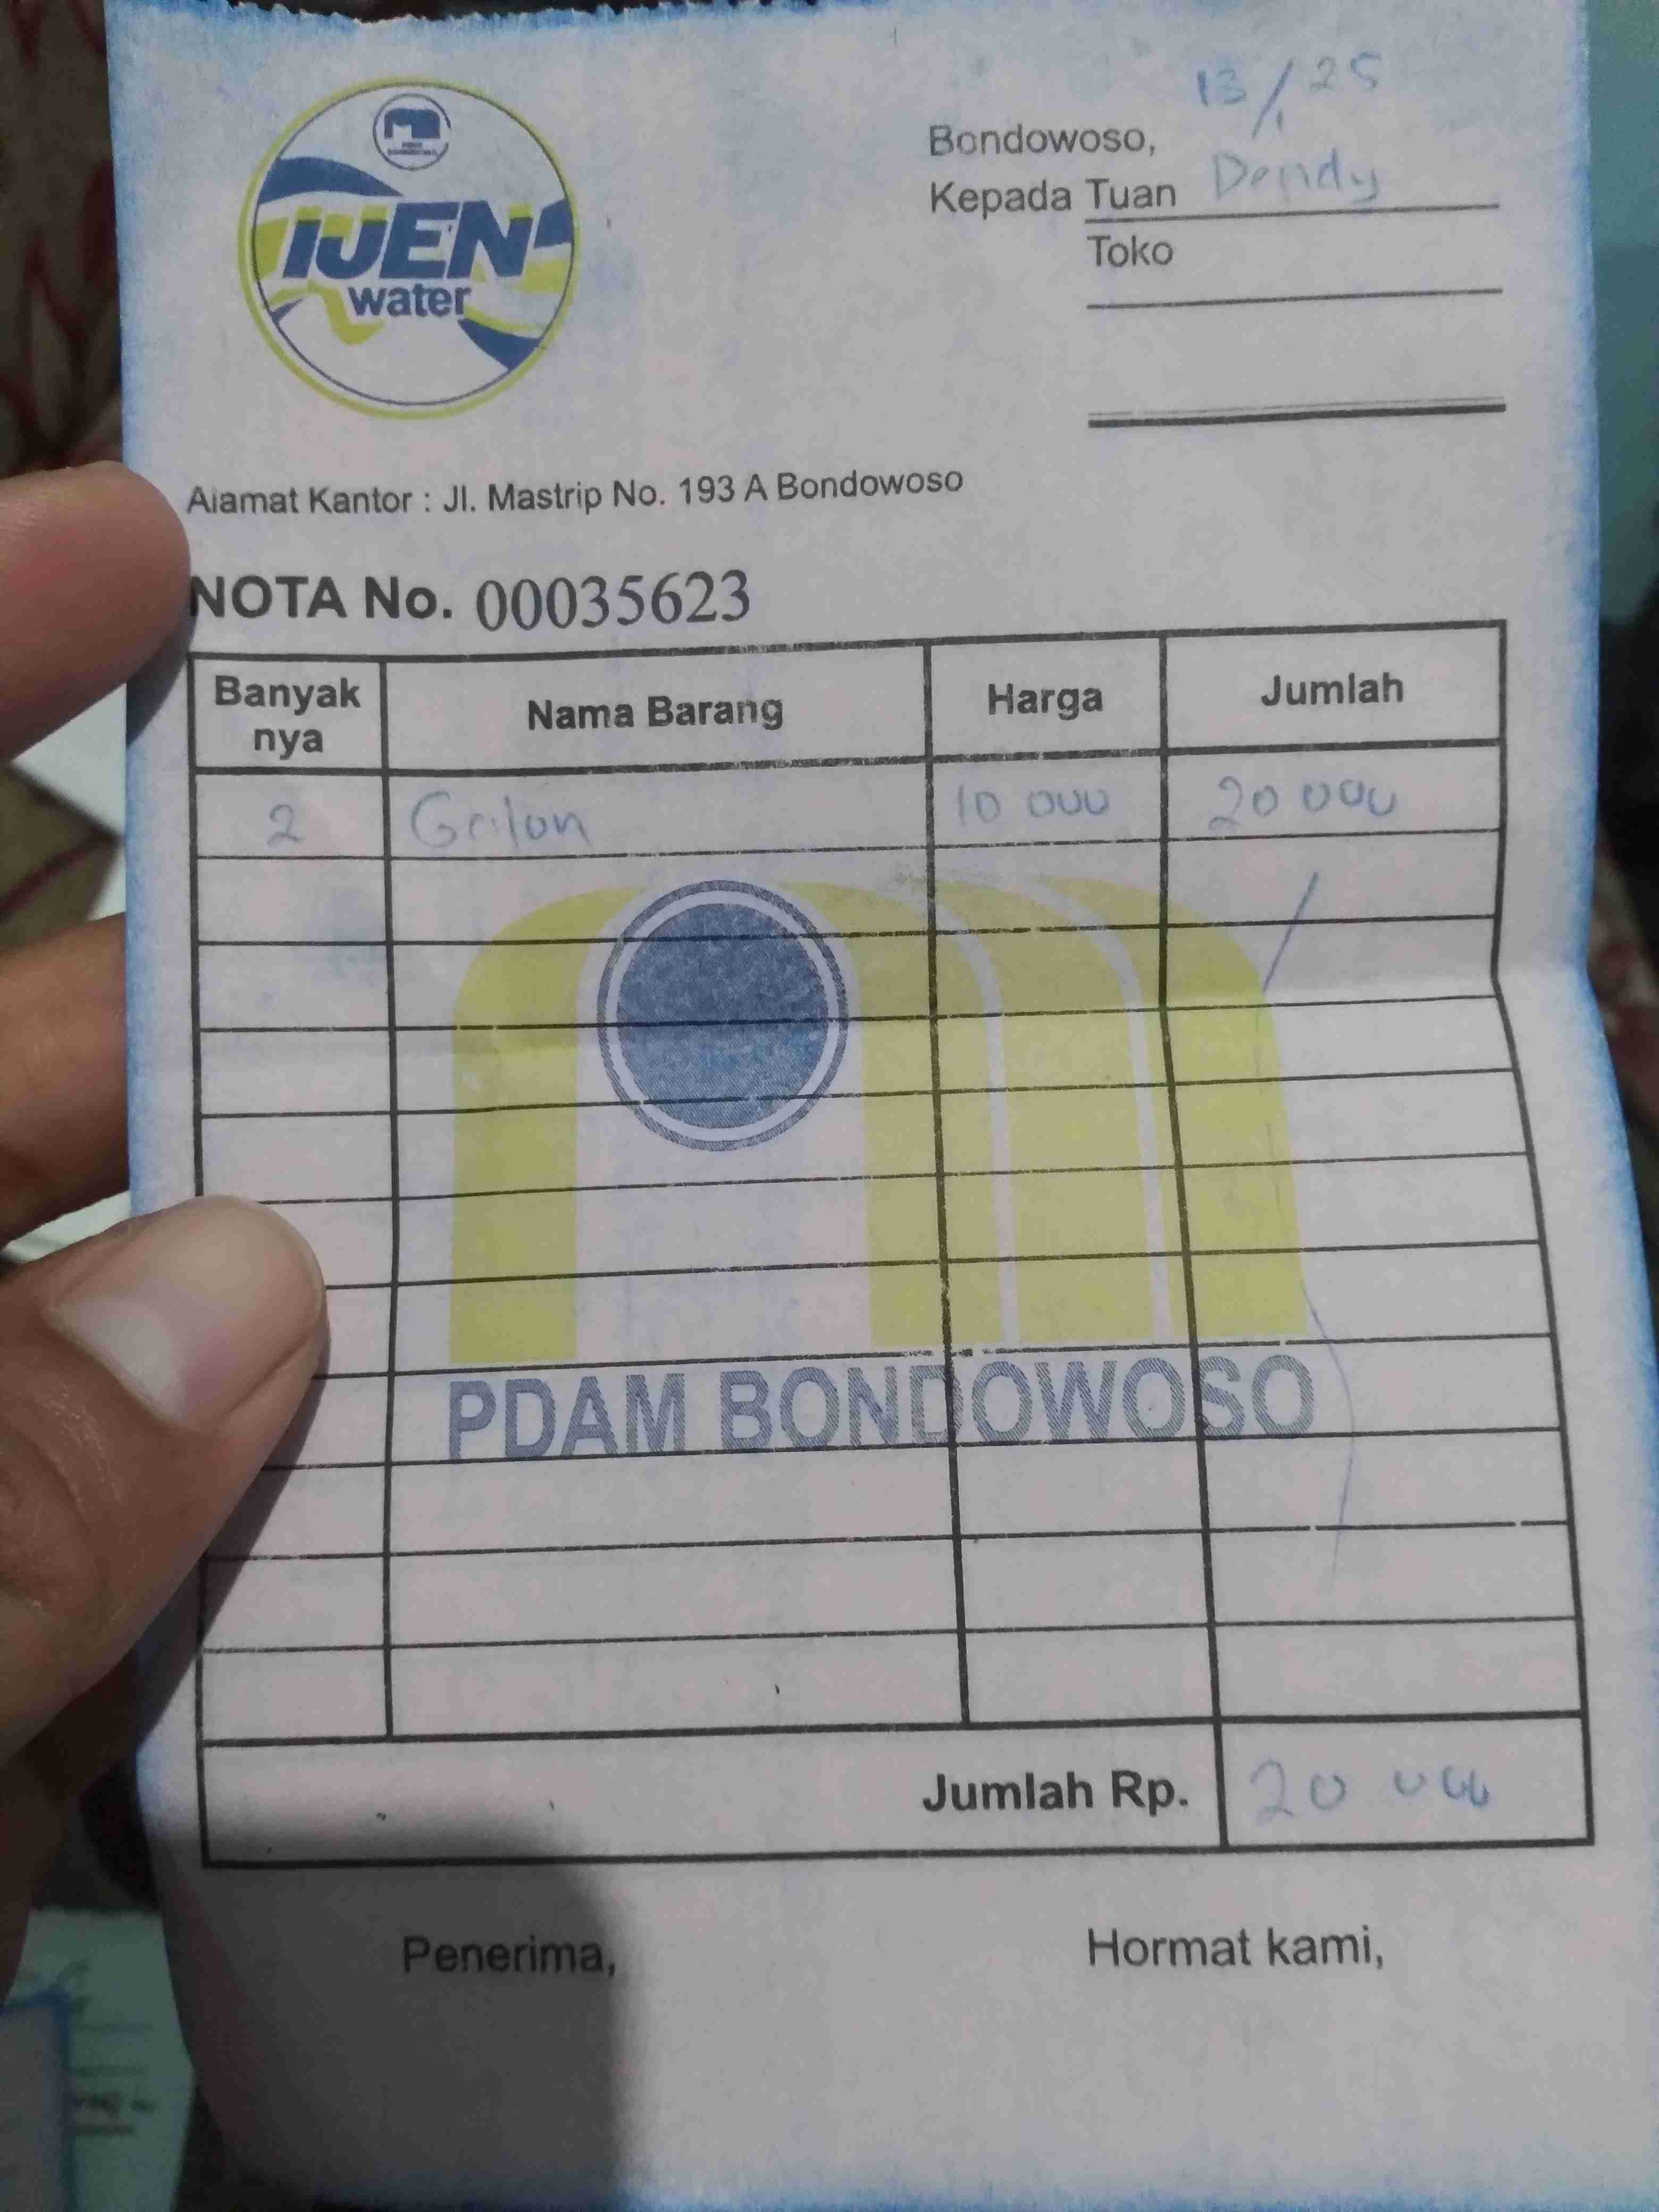 IJEN
water
13/1 25
Bondowoso,
Kepada Tuan Dendy
Toko
Alamat Kantor : Jl. Mastrip No. 193 A Bondowoso
NOTA No. 00035623
Banyak nya Nama Barang Harga Jumlah
2 Galon 10 000 20 000
PDAM BONDOWOSO
Jumlah Rp. 20 000
Penerima, Hormat kami,